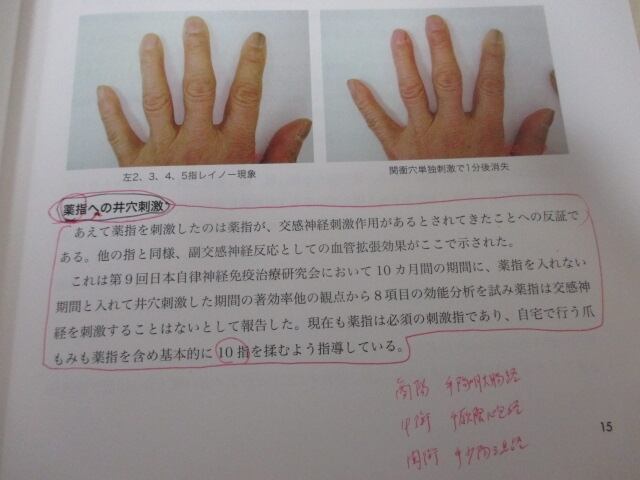 左2、3、4、5指レイノー現象
関衝穴単独刺激で1分後消失
薬指への井穴刺激
あえて薬指を刺激したのは薬指が、交感神経刺激作用があるとされてきたことへの反証で
ある。他の指と同様、副交感神経反応としての血管拡張効果がここで示された。
これは第9回日本自律神経免疫治療研究会において10カ月間の期間に、薬指を入れない
期間と入れて井穴刺激した期間の著効率他の観点から8項目の効能分析を試み薬指は交感神
経を刺激することはないとして報告した。現在も薬指は必須の刺激指であり、自宅で行う爪
もみも薬指を含め基本的に10指を揉むよう指導している。
商陽 手陽明大腸経
中衝 手厥陰心包経
関衝 手少陽三焦経
15